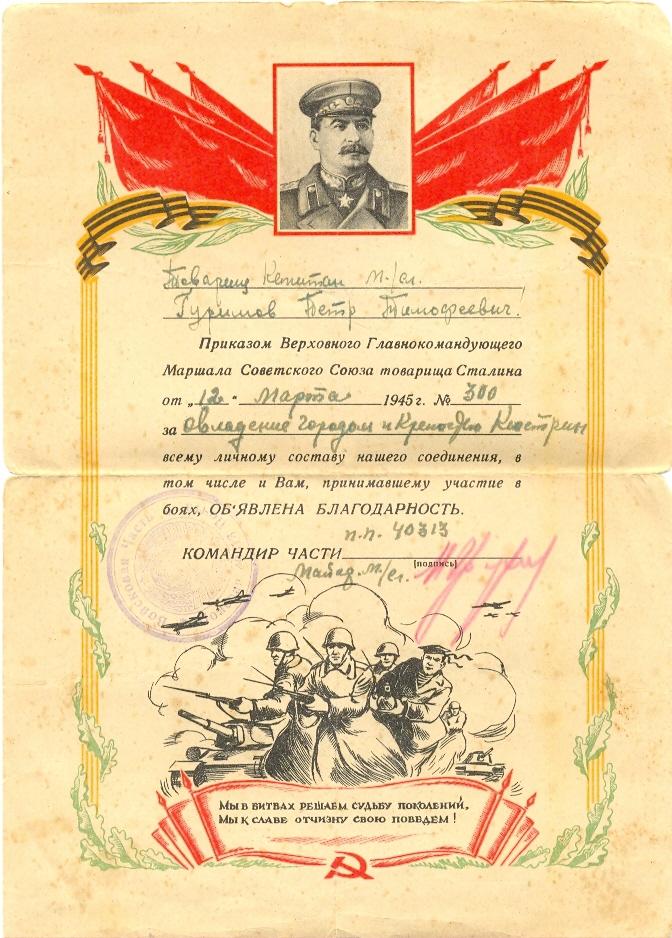 Товарищ Капитан м/сл.
Гуримов Петр Тимофеевич.
Приказом Верховного Главнокомандующего
Маршала Советского Союза товарища Сталина
от „12“ Марта 1945 г. № 300
за Овладение городом и крепостью Кюстрин
всему личному составу нашего соединения, в
том числе и Вам, принимавшему участие в
боях, ОБ'ЯВЛЕНА БЛАГОДАРНОСТЬ.
п.п. 40313
КОМАНДИР ЧАСТИ
(подпись)
м/сл.
Войсковая часть
МЫ В БИТВАХ РЕШАЕМ СУДЬБУ ПОКОЛЕНИЙ,
МЫ К СЛАВЕ ОТЧИЗНУ СВОЮ ПОВЕДЕМ!